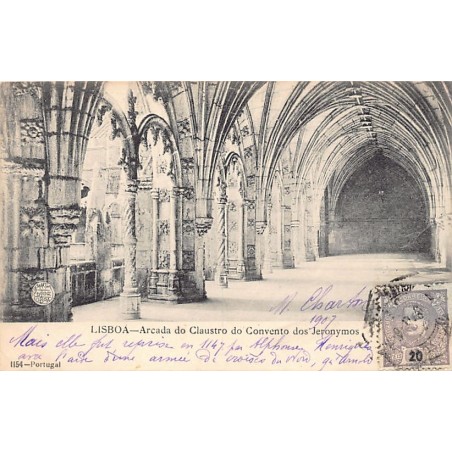 M. Charton
1907
LISBOA—Arcada do Claustro do Convento dos Jeronymos
20
Mais elle fut reprise en 1147 par Alphonse Henriques
avec l'aide d'une armée de croisés du Nord, qu'
1154—Portugal